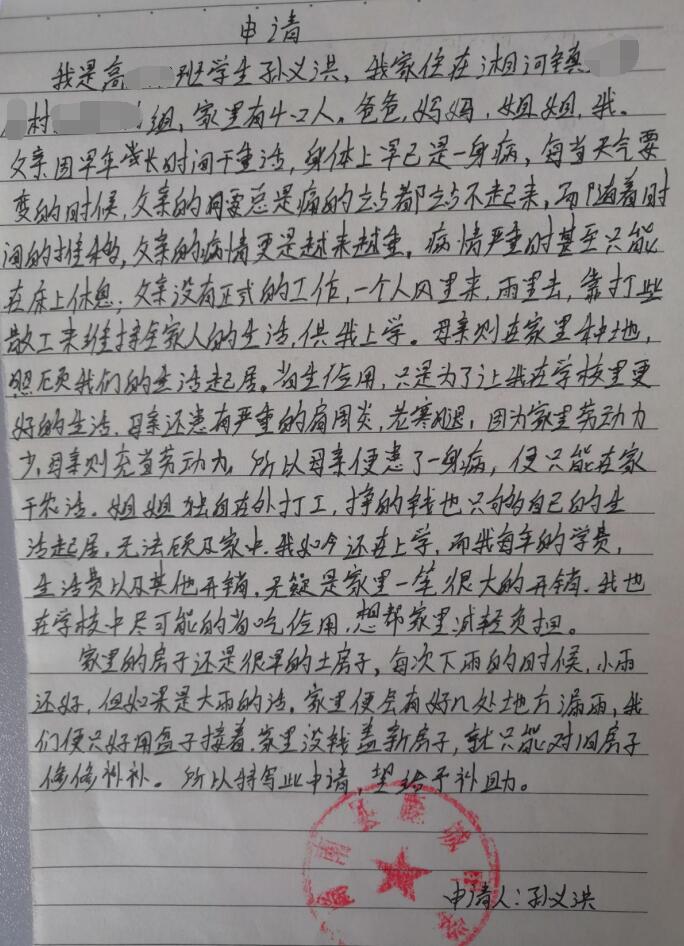 申请
我是高 班学生孙义洪，我家住在湘河镇
村 组，家里有4口人。爸爸，妈妈，姐姐，我。
父亲因早年尝长时间干重活，身体上早已是一身病，每当天气要
变的时候，父亲的 总是痛的立都立不起来，而随着时
间的推移，父亲的病情更是越来越重。病情严重时甚至只能
在床上休息；父亲没有正式的工作，一个人风里来，雨里去，靠打些
散工来维持全家人的生活，供我上学。母亲则在家里种地，
照顾我们的生活起居。省生俭用，只是为了让我在学校里更
好的生活，母亲还患有严重的肩周炎，老寒腿，因为家里劳动力
少，母亲则充当劳动力，所以母亲便患了一身病，便只能在家
干农活。姐姐独自在外打工，挣的钱也只够自己的生
活起居，无法顾及家中，我如今还在上学，而我每年的学费，
生活费以及其他开销，无疑是家里一笔很大的开销，我也
在学校中尽可能的省吃俭用，想帮家里减轻负担。
家里的房子还是很早的土房子，每次下雨的时候，小雨
还好，但如果是大雨的话，家里便会有好几处地方漏雨，我
们便只好用盒子接着，家里没钱盖新房子，就只能对旧房子
修修补补。所以特写此申请，望给予补助。
申请人：孙义洪